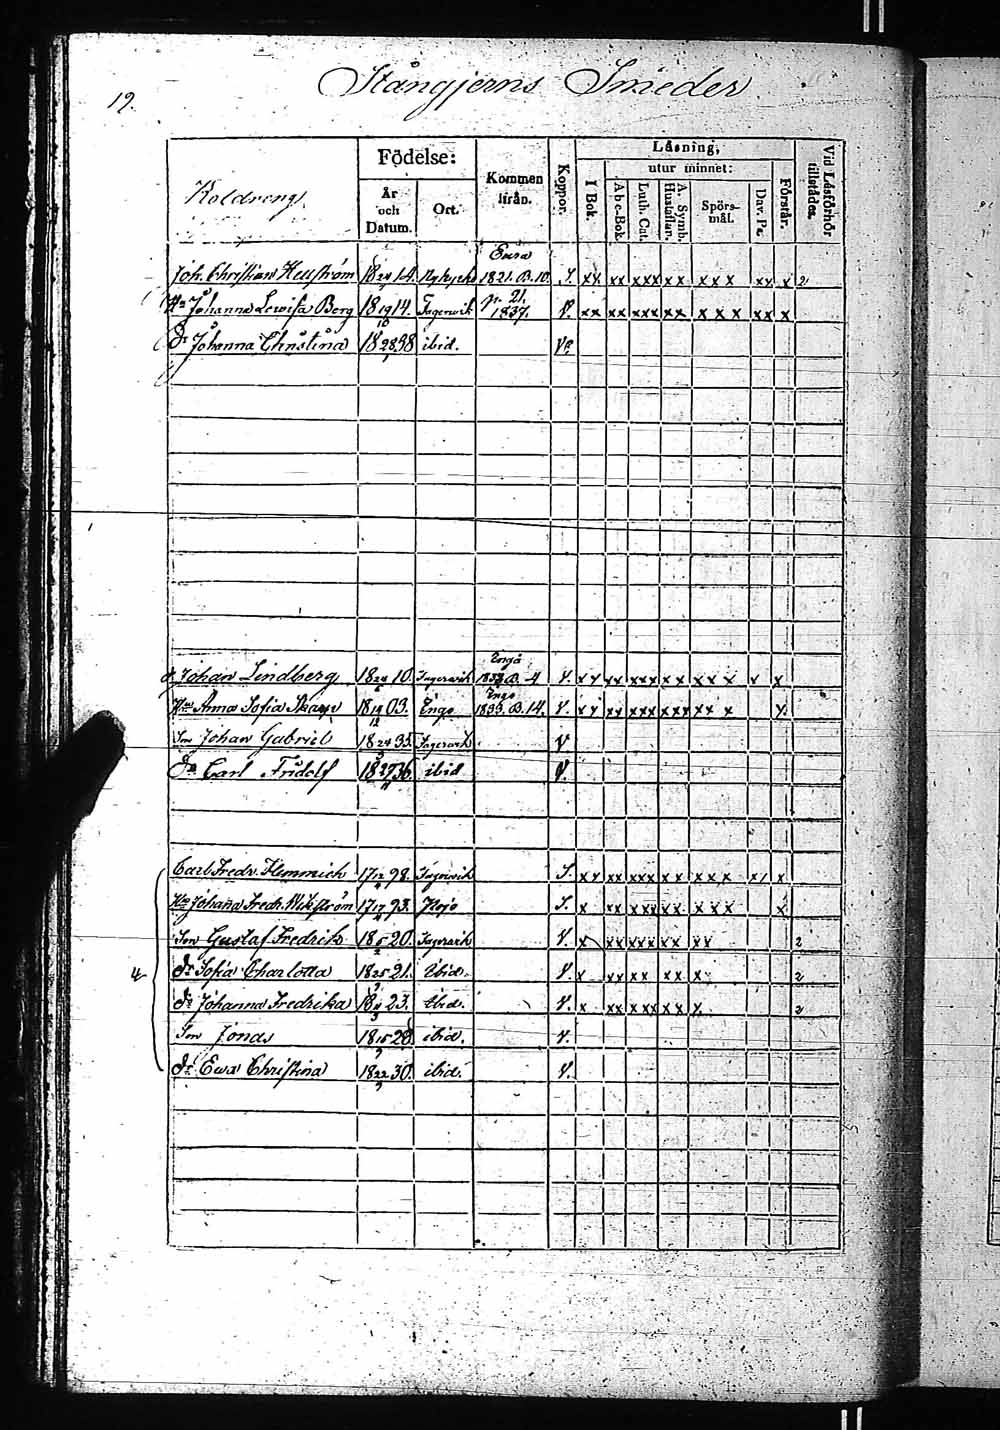 19.
Stångjerns Smeder
Koldreng
Födelse:
År och Datum.
Ort.
Kommen ifrån.
Koppor.
Läsning,
I Bok.
utur minnet:
Abc-Bok
Luth. Cat.
A. Symb. Hustaflar.
Spörsmål.
Dav. Ps.
Förstår.
Vid Läsförhör tillstädes.
Joh. Christian 18 24 14. 1821. B. 10. S. xx xx xxx xx xxx xx x 2
Hu Johanna Lowisa Berg 18 19/10 14. Fagervik p. 21. 1837. V. xx xx xxx xx xxx xx x
Dr Johanna Christina 18 28/1 38 ibid. Vc.
Johan Lindberg 18 24 10. Fagervik Engå B. 4 V. xx xx xxx xx xxx x x
Hu Anna Sofia 18 19/12 03. Engo Engo 1833. B. 14. V. xx xx xxx xxx xx x x
Son Johan Gabriel 18 24 35. Fagervik V
Dn Carl Fridolf 18 29/11 36 ibid V.
4
Carl Fredr. Flemmich 17 12 98. Fagervik S. xx xx xxx xx xxx x x
Hu Johanna Fredr. Wikström 17 17 93. S. x xx xxx xx xxx x
Son Gustaf Fredrik 18 5/2 20. Fagervik V. x xx xxx xx xx 2
Dr Sofia Charlotta 18 25 21. ibid. V. x xx xx xx x 2
Dr Johanna Fredrika 18 23. ibid. V. x xx xxx xx x 2
Son Jonas 18 15 28 ibid. V.
Dr Ewa Christina 18 22 30. ibid. V.